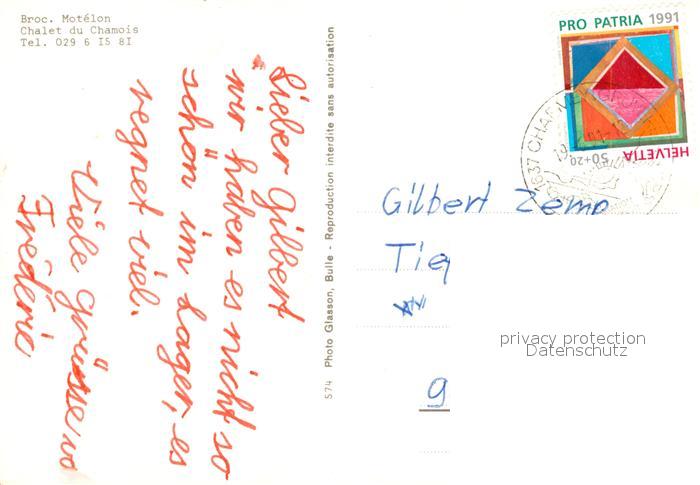 Broc. Motélon
Chalet du Chamois
Tel. 029 6 I5 8I
Lieber Gilbert
wir haben es nicht so
schön im Lager, es
regnet viel.
Viele grüsse vo
Frédéric
574 Photo Glasson, Bulle - Reproduction interdite sans autorisation
PRO PATRIA 1991
HELVETIA
50+20
1637 CHARMEY
Gilbert Zemp
Tie
9
privacy protection
Datenschutz